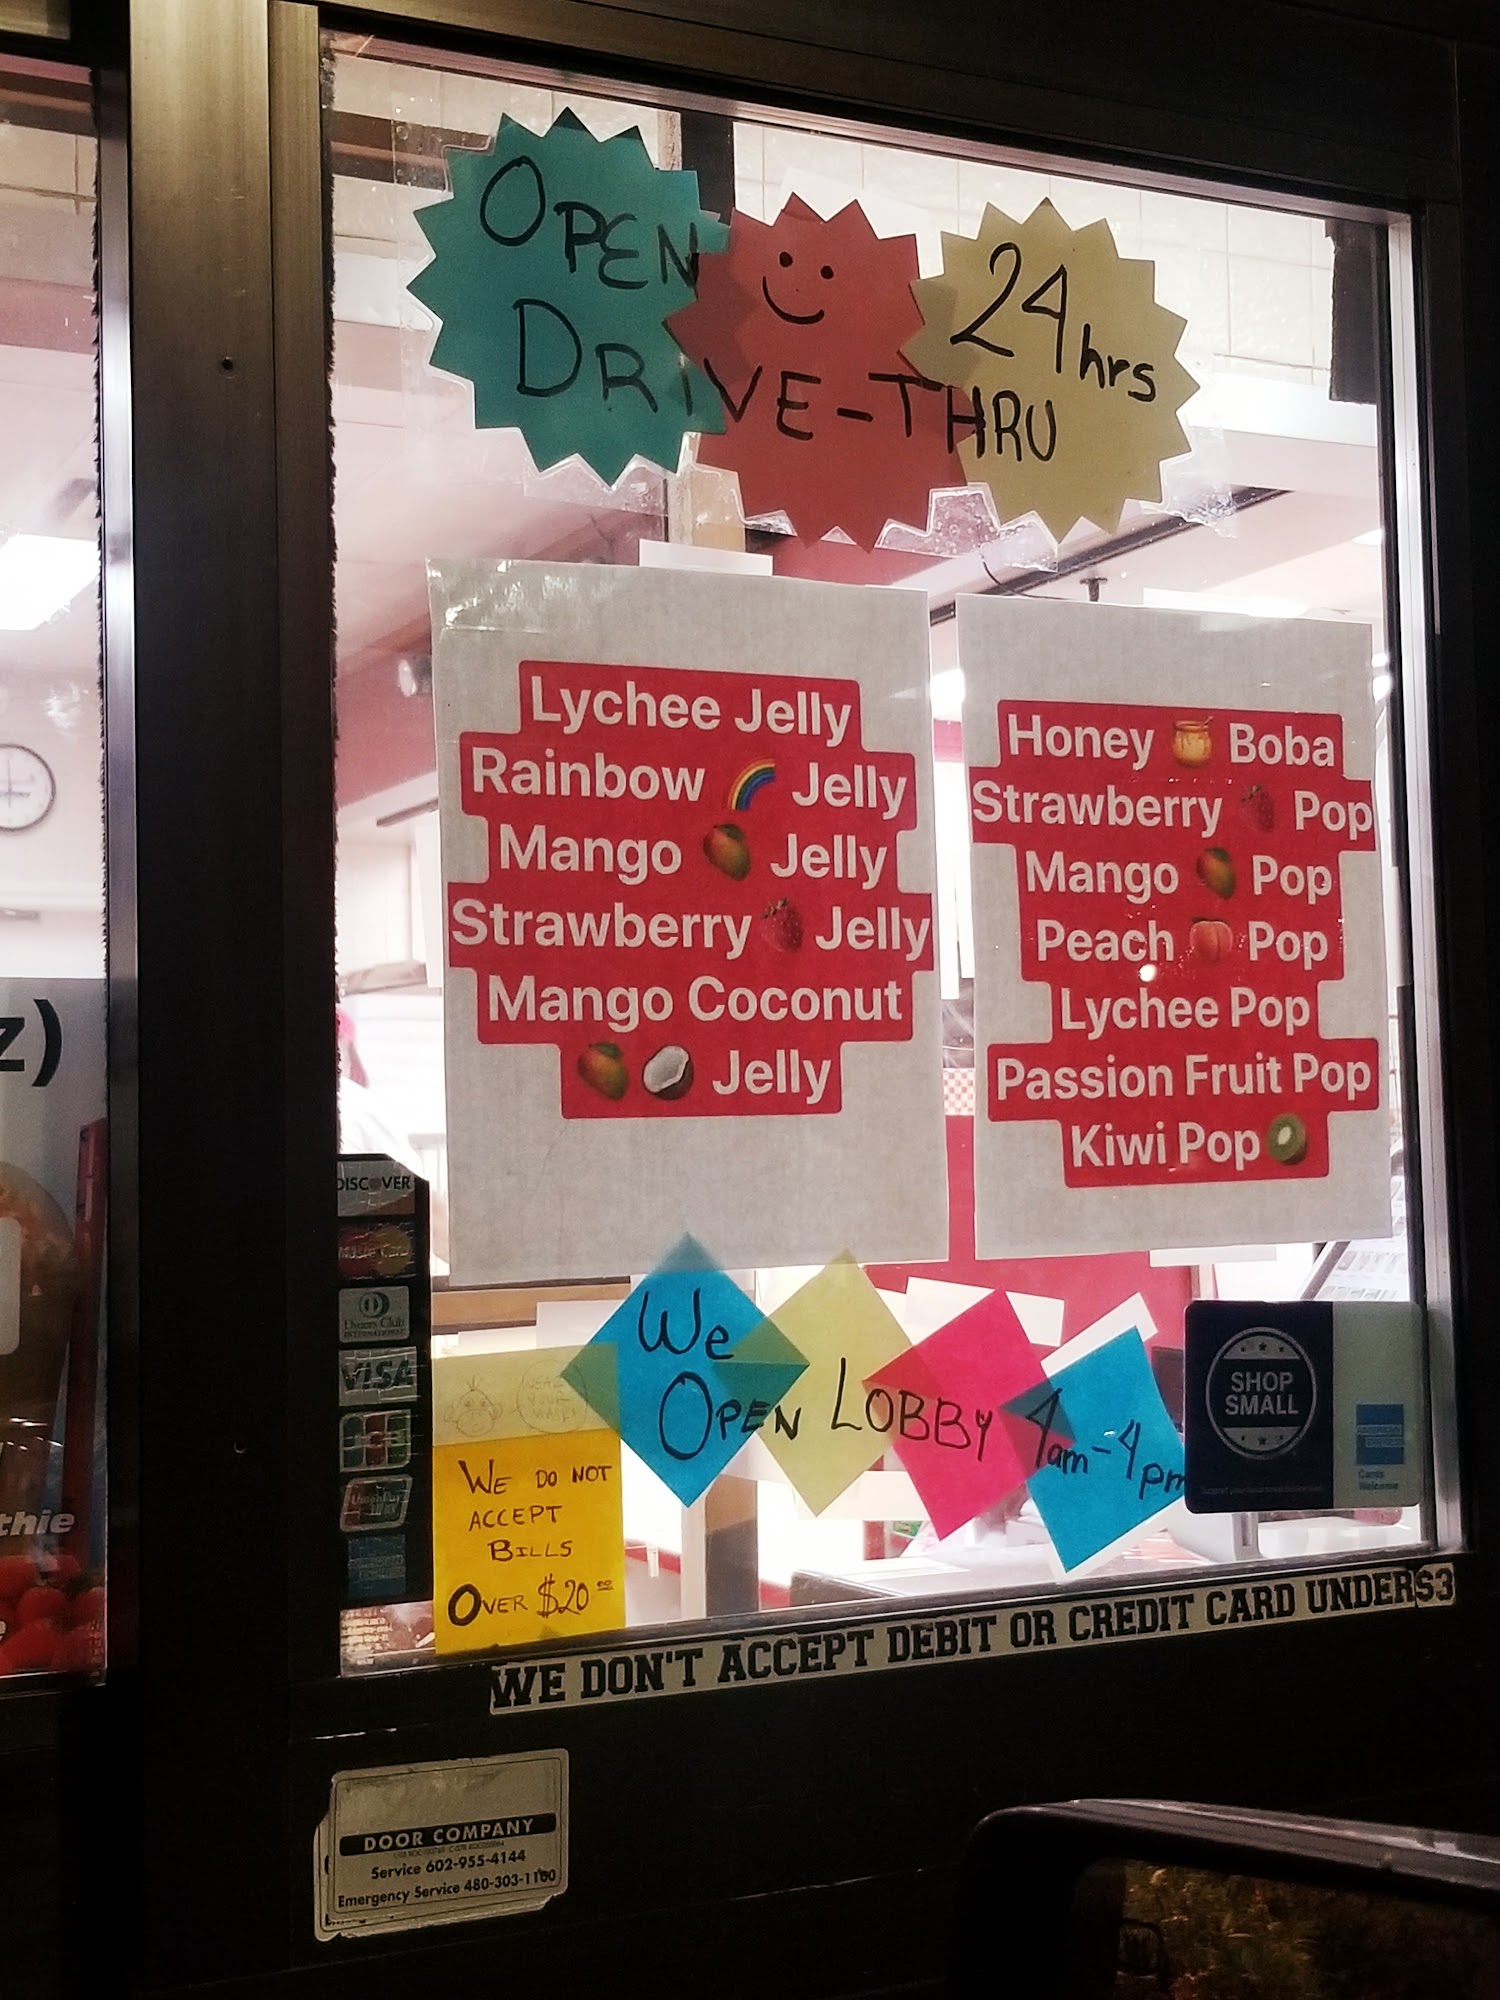 OPEN
DRIVE-THRU
24hrs
Lychee Jelly
Rainbow 🌈 Jelly
Mango 🥭 Jelly
Strawberry 🍓 Jelly
Mango Coconut
🥭 🥥 Jelly
Honey 🍯 Boba
Strawberry 🍓 Pop
Mango 🥭 Pop
Peach 🍑 Pop
Lychee Pop
Passion Fruit Pop
Kiwi Pop 🥝
z)
thie
DISCOVER
MasterCard
Diners Club
INTERNATIONAL
VISA
JCB
UnionPay
We
OPEN LOBBY 4am-4pm
WEAR
YOUR
MASK!
WE DO NOT
ACCEPT
BILLS
OVER $20.00
SHOP
SMALL
AMERICAN
EXPRESS
Cards
Welcome
WE DON'T ACCEPT DEBIT OR CREDIT CARD UNDER$3
DOOR COMPANY
Service 602-955-4144
Emergency Service 480-303-1100